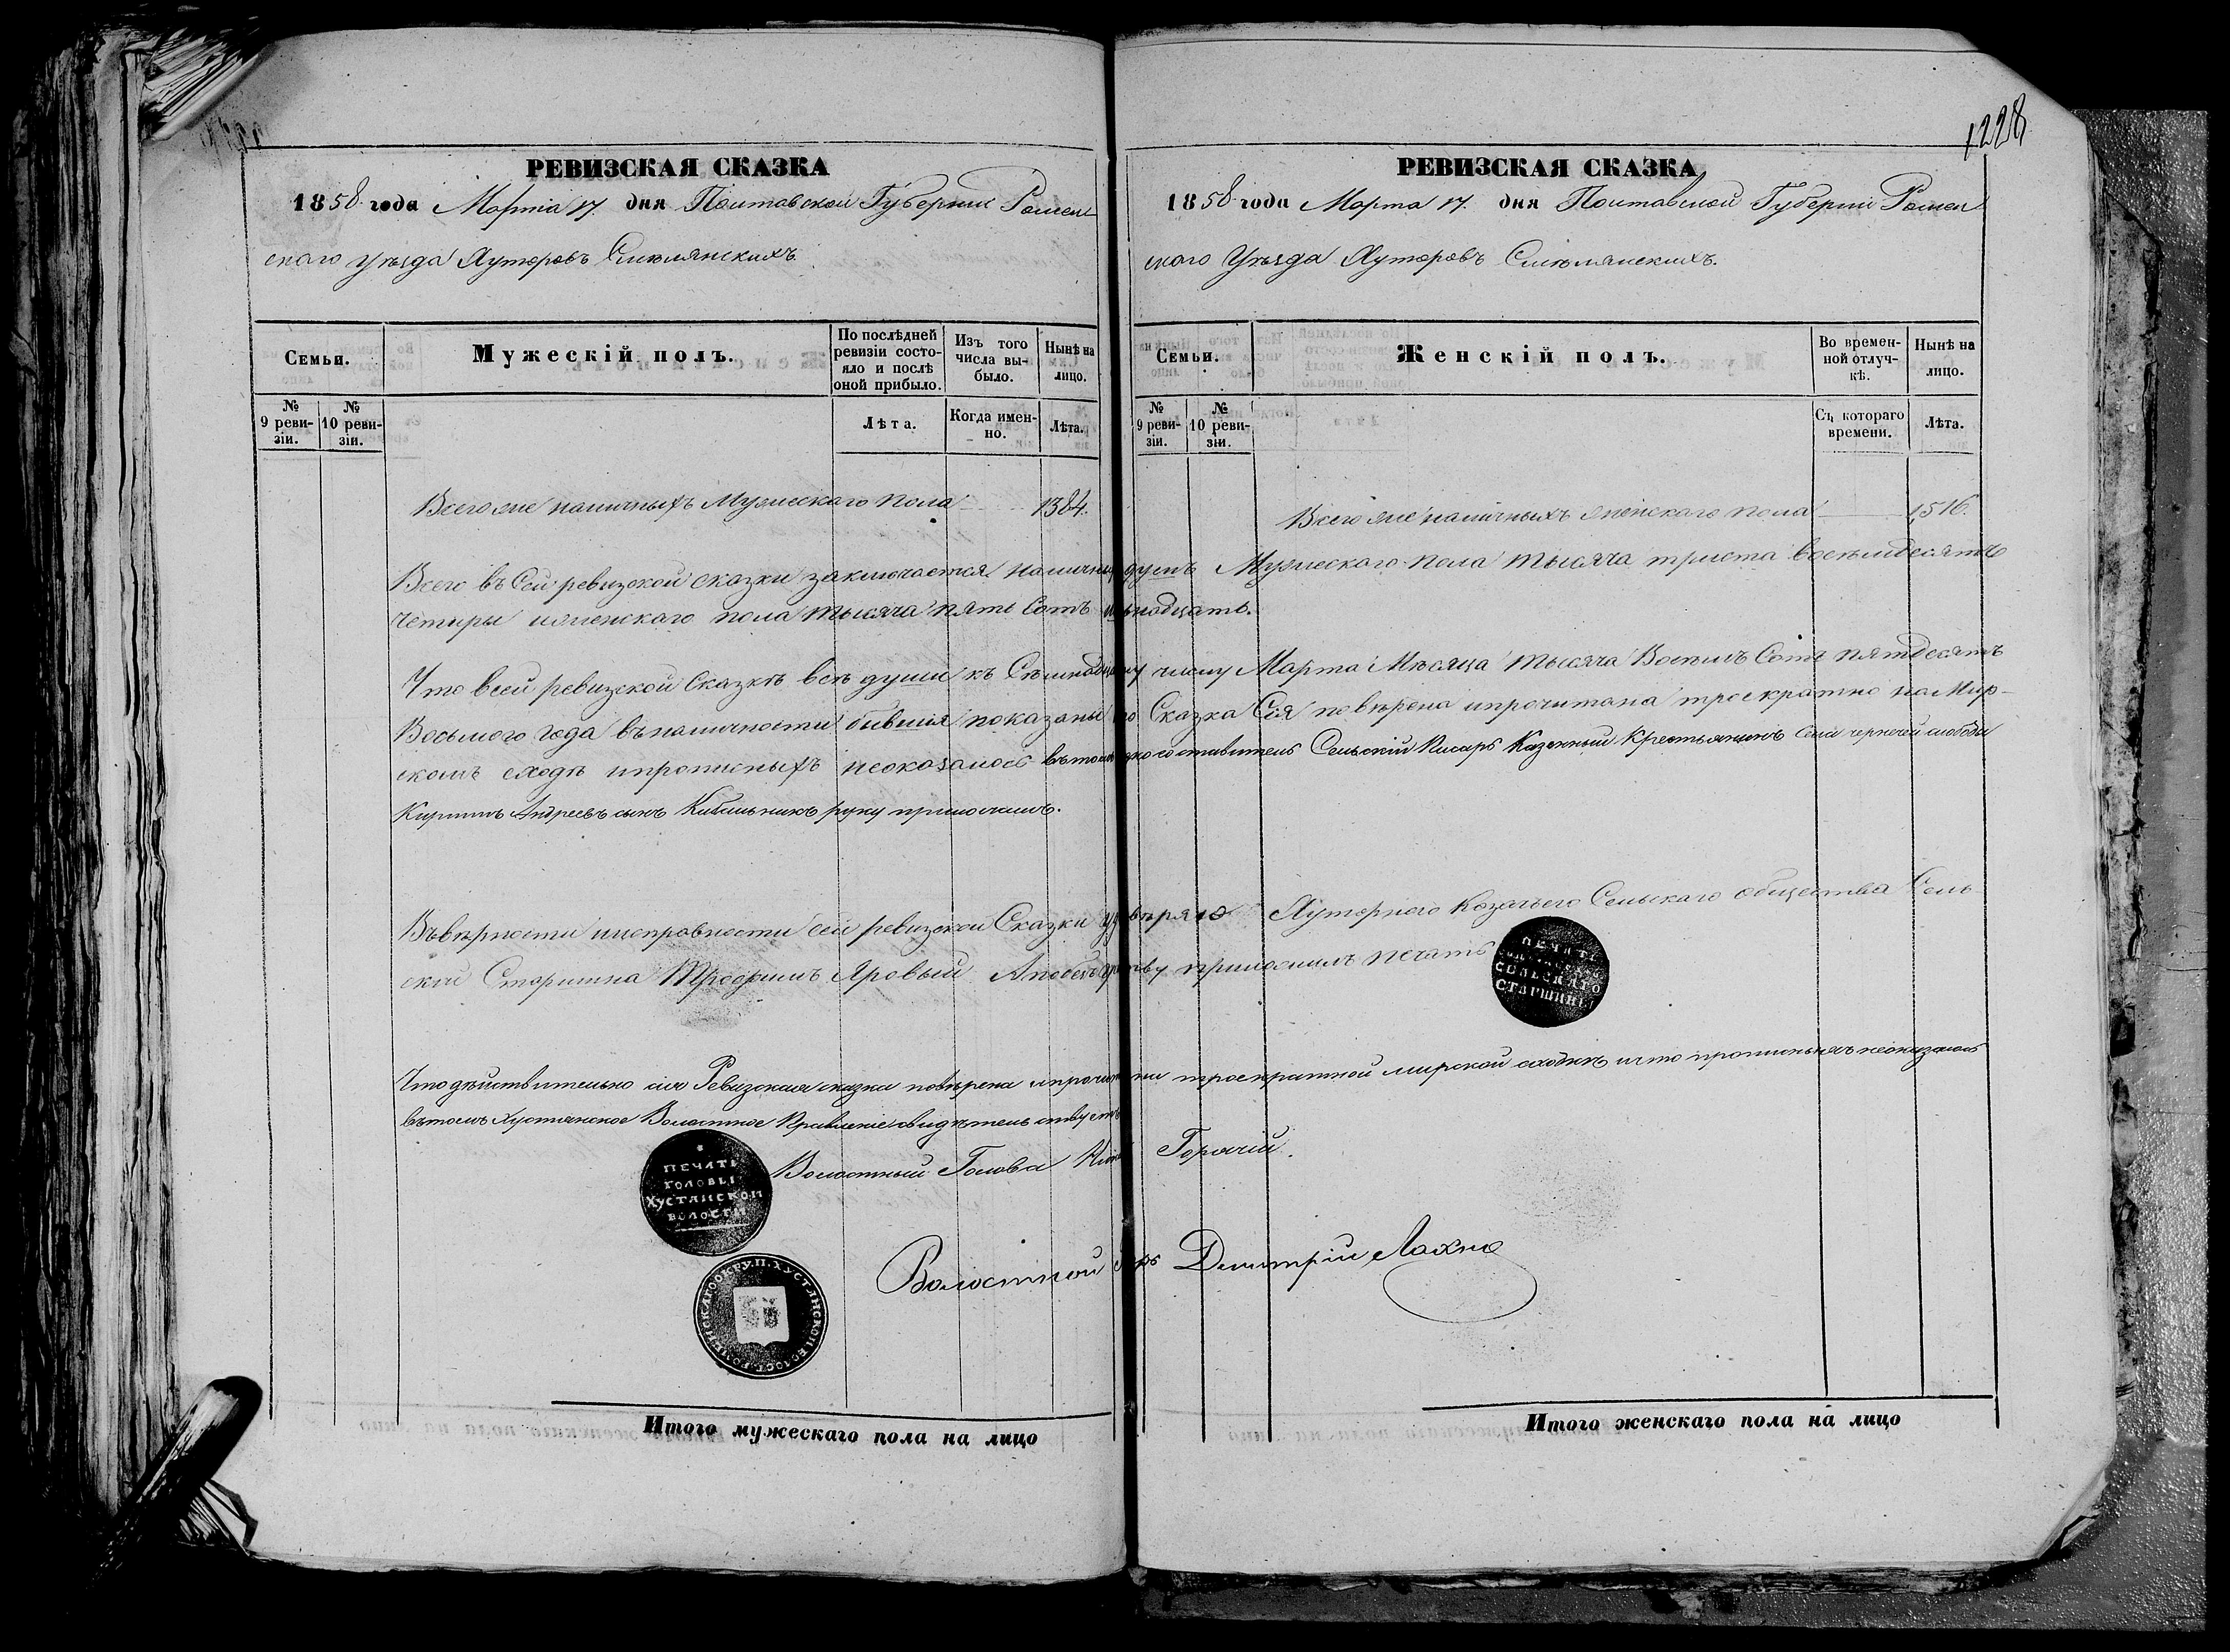 1228
РЕВИЗСКАЯ СКАЗКА
1858 года Мартіа 17. дня Полтавской Губерніи Ромен
скаго уѣзда Хуторовъ Смѣлянскихъ
Семьи.
Мужескій полъ.
По послѣдней ревизіи состояло и послѣ оной прибыло.
Изъ того числа выбыло.
Нынѣ на лицо.
№ 9 ревизіи.
№ 10 ревизіи.
Лѣта.
Когда именно.
Лѣта.
Всего же наличныхъ Мужескаго пола 1384.
РЕВИЗСКАЯ СКАЗКА
1858 года Марта 17. дня Полтавской Губерніи Ромен
скаго Уѣзда Хуторовъ Смѣлянскихъ.
Семьи.
Женскій полъ.
Во временной отлучкѣ.
Нынѣ на лицо.
№ 9 ревизіи.
№ 10 ревизіи.
Съ котораго времени.
Лѣта.
Всего же наличныхъ женскаго пола 1,516.
Всего въ Сей ревизской сказки заключается наличныхъ душъ Мужескаго пола тысяча триста восемьдесятъ
четыры иженскаго пола тысяча пять Сотъ
Что всей ревизской Сказкѣ всѣ души къ Семнадцатому числу Марта Мѣсяца тысяча Восемъ Сотъ пятдесятъ
Восьмого года въналичности бывшія показаны Сказка Сія повѣрена ипрочитана троекратно на Мир-
скомъ сходѣ ипрописныхъ неоказалось вътомъ составитель Сельскій Писарь Казенный Крестьянинъ Села чернечей слободы
Кирилъ Андреевъ сынъ руку приложилъ.
Въвѣрности иисправности сей ревизской Сказки увѣряю Хуторного Козачьего Сельскаго общества Сель
скій Старшина Трофимъ Яровый приложилъ печать
ПЕЧАТЬ
СЕЛЬСКАГО
СТАРШИНЫ
Что дѣйствительно сія Ревизская сказка повѣрена ипрочитана троекратной мирской сходкѣ ичто прописныхъ неоказалось
вътомъ Хустянское Волостное Правленіе свидѣтельствуетъ
ПЕЧАТЬ
ГОЛОВЫ
ХУСТЯНСКОЙ
ВОЛОСТИ
Волостный Голова Горячій.
Волостной Дмитрій Лахно
РОМЕНСКАГО ОКРУ. П. ХУСТЯНСКОЙ ВОЛОСТ.
Итого мужескаго пола на лицо
Итого женскаго пола на лицо